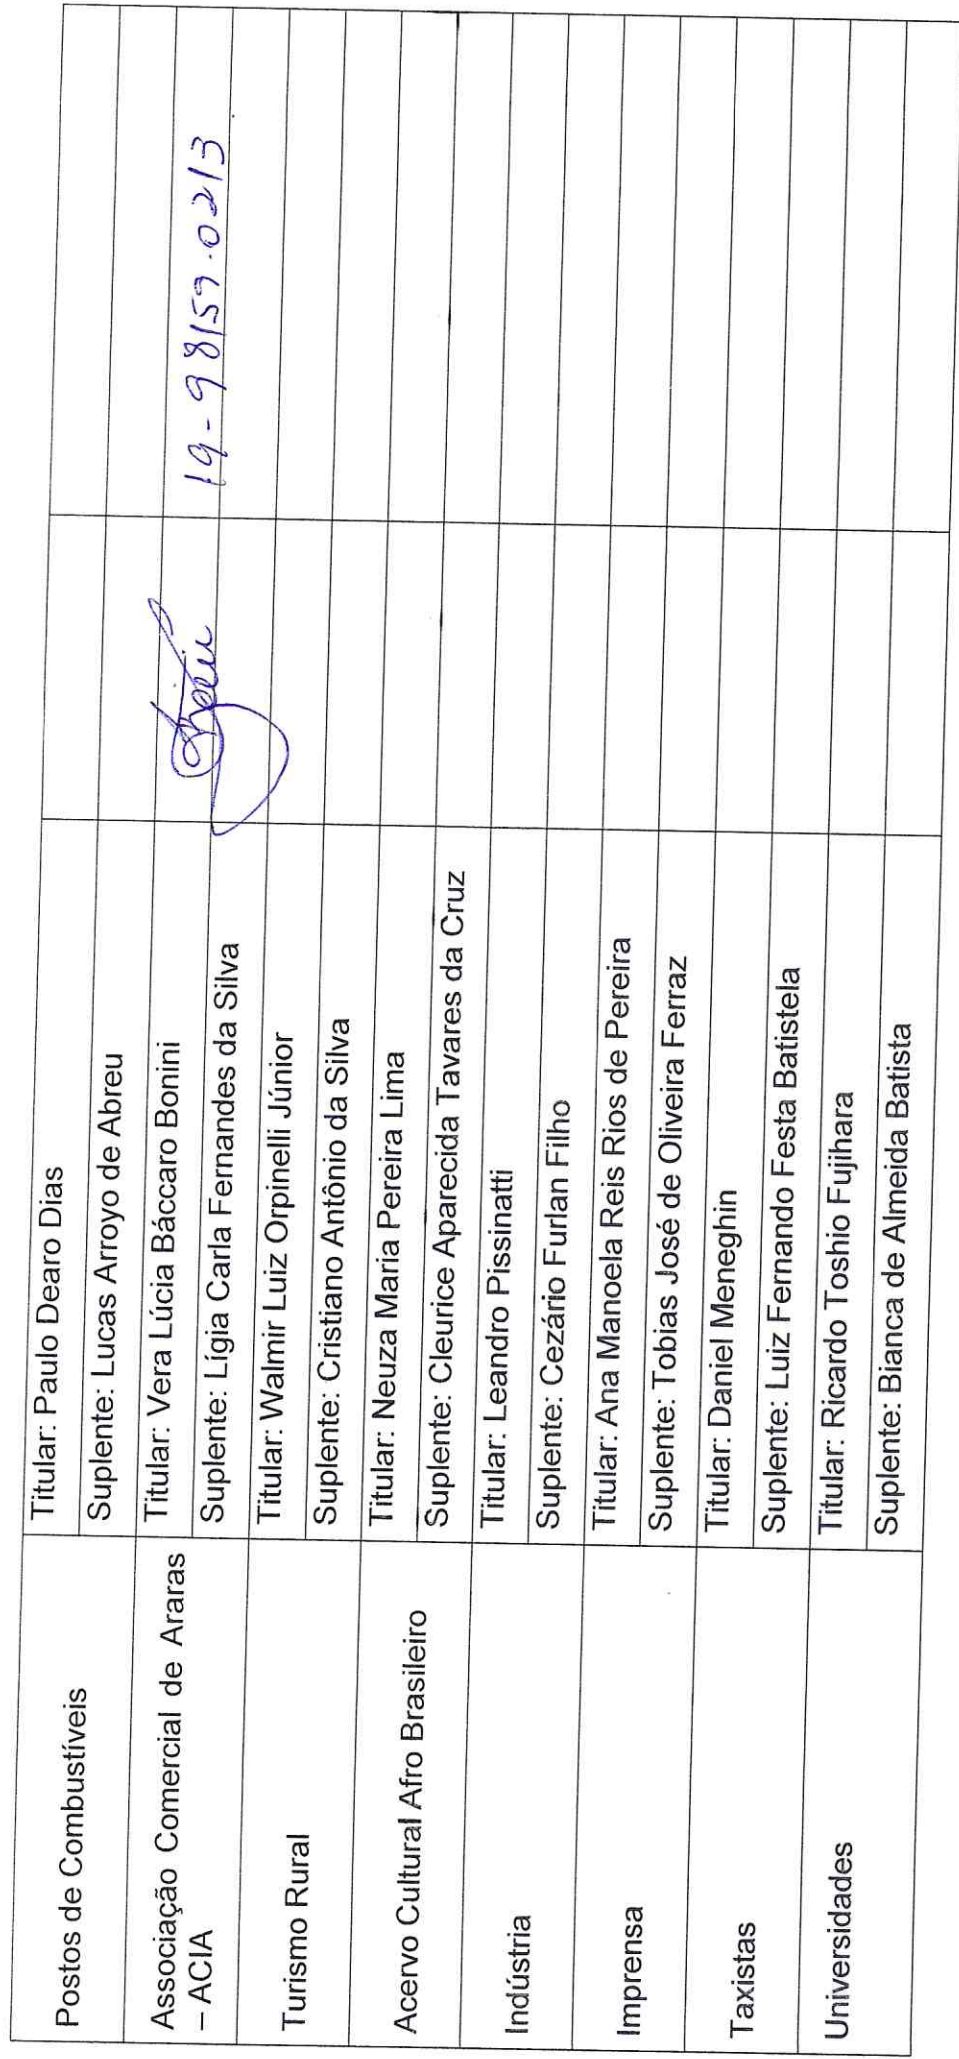 Postos de Combustíveis
Titular: Paulo Dearo Dias
Suplente: Lucas Arroyo de Abreu
Associação Comercial de Araras
– ACIA
Titular: Vera Lúcia Báccaro Bonini
Suplente: Lígia Carla Fernandes da Silva
19-98159.0213
Turismo Rural
Titular: Walmir Luiz Orpinelli Júnior
Suplente: Cristiano Antônio da Silva
Acervo Cultural Afro Brasileiro
Titular: Neuza Maria Pereira Lima
Suplente: Cleurice Aparecida Tavares da Cruz
Indústria
Titular: Leandro Pissinatti
Suplente: Cezário Furlan Filho
Imprensa
Titular: Ana Manoela Reis Rios de Pereira
Suplente: Tobias José de Oliveira Ferraz
Taxistas
Titular: Daniel Meneghin
Suplente: Luiz Fernando Festa Batistela
Universidades
Titular: Ricardo Toshio Fujihara
Suplente: Bianca de Almeida Batista